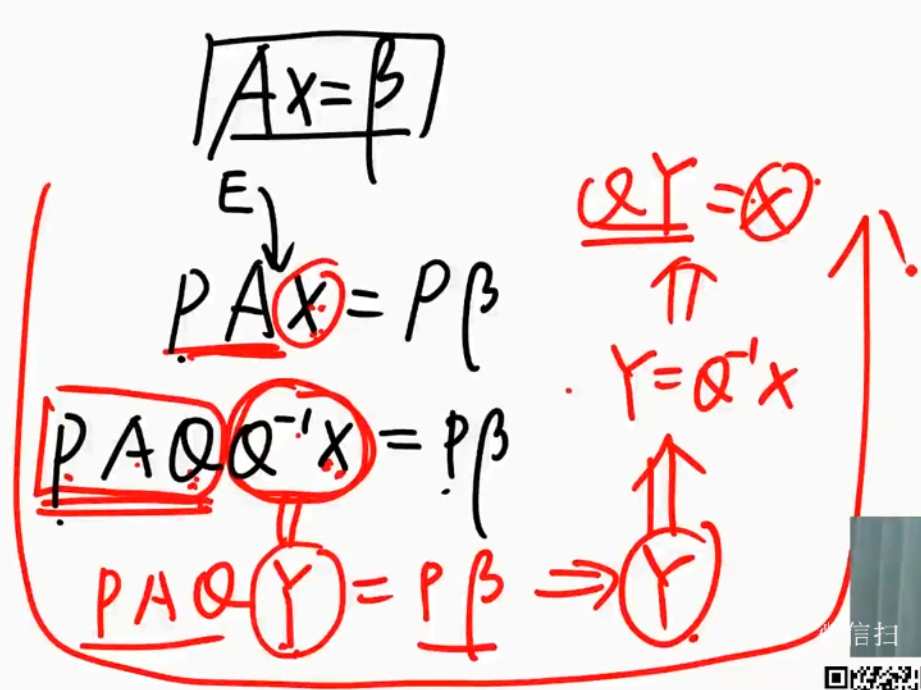 Ax=β
E
PAX=Pβ
PAQQ⁻¹X=Pβ
PAQY=Pβ⇒Y
Y=Q⁻¹X
QY=X
信扫